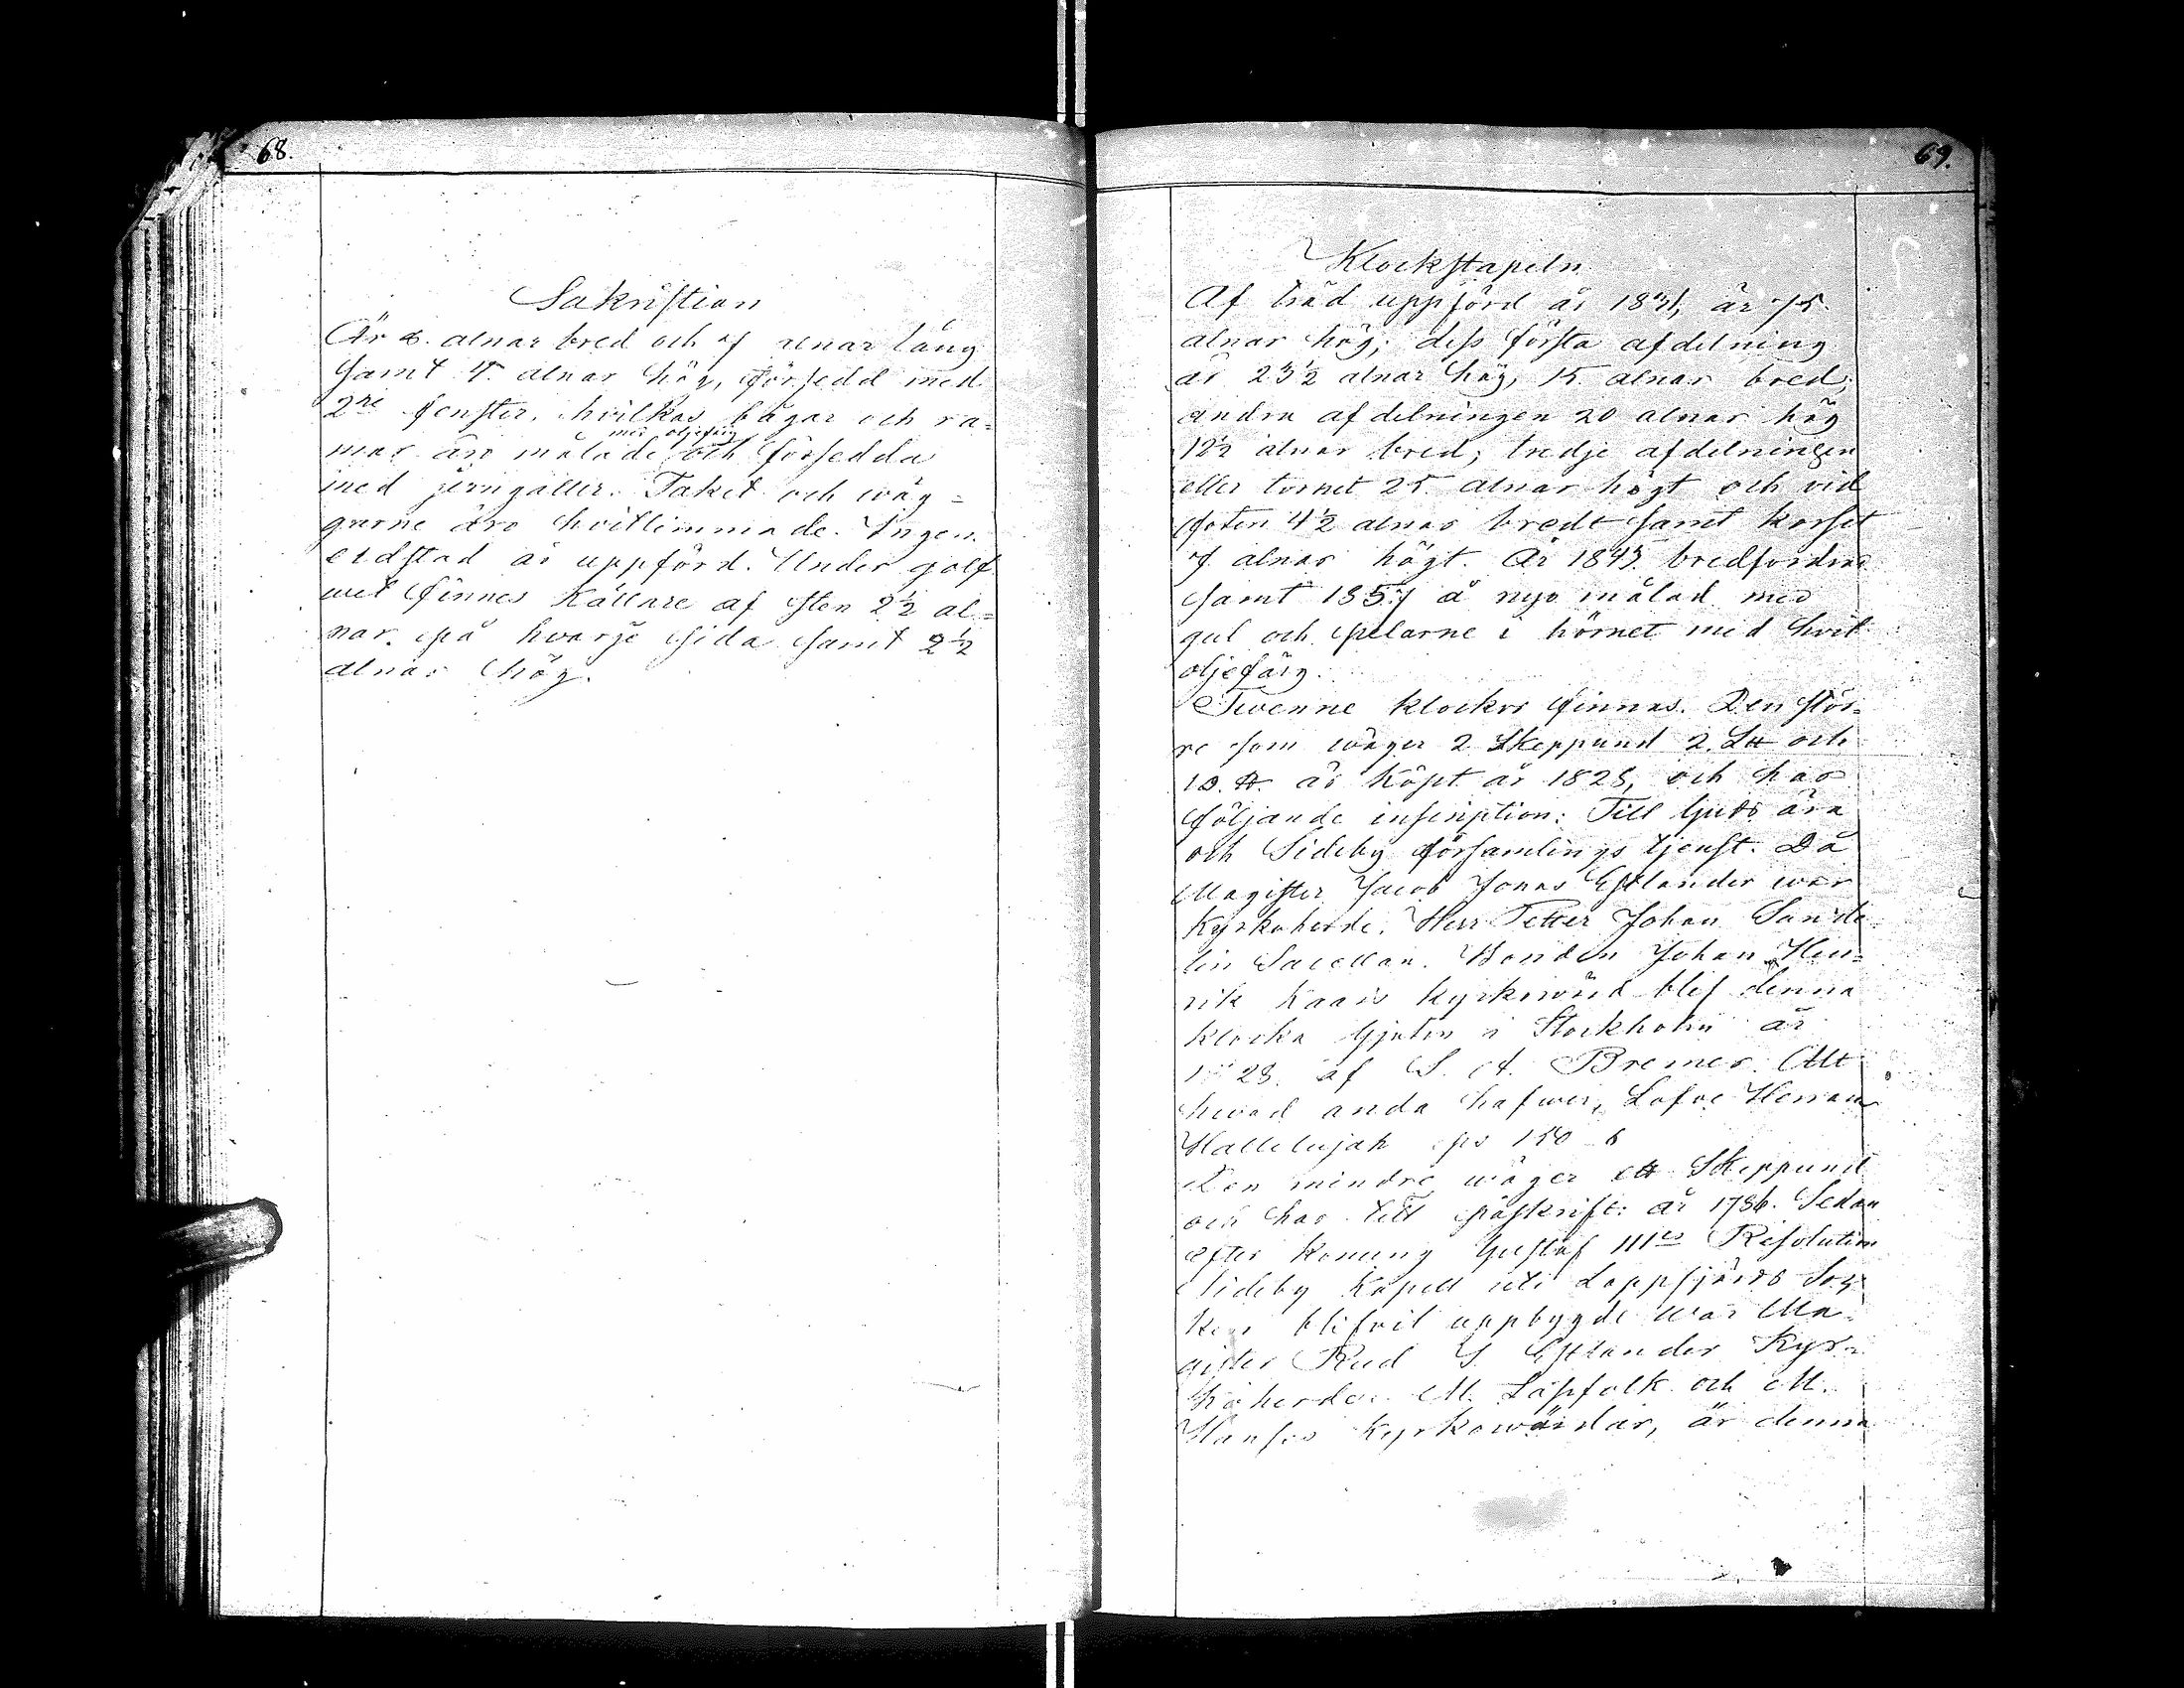 68.
Sakristian
Är 8. alnar bred och 7 alnar lång
samt 4. alnar hög, försedd med
2ne fenster, hvilkas bågar och ra=
med oljefärg
mar äro målade och försedda
med jerngaller. Taket och wäg=
garne äro hvitlimmade. Ingen
eldstad är uppförd. Under golf
wet finnes Källare af sten 2½ al=
nar på hwarje sida samt 2½
alnar hög.
69.
Klockstapeln
Af träd uppförd år 1831, är 75.
alnar hög; dess första afdelning
är 23½ alnar hög, 15. alnar bred;
andra afdelningen 20 alnar hög
12½ alnar bred; tredje afdelningen
eller tornet 25. alnar högt och vid
foten 4½ alnar bredt samt korset
7 alnar högt. År 1845 brädfordrad
samt 1857 å nyo målad med
gul och pelarne i hörnet med hvit
oljefärg.
Twenne klockor finnas. Den stör=
re som wäger 2 Skeppund 2. L℔ och
10. ℔. är köpt år 1828, och har
följande inscription: Till Guds ära
och Sideby församlings tjenst. Då
Magister Jacob Jonas Estlander war
Kyrkoherde. Herr Petter Johan Sande
lin Sacellan. Bonden Johan Hen=
rik Kaas kyrkowärd blef denna
klocka Gjuten i Stockholm år
1828. af S. A. Bremer. Allt
hwad anda hafwer, Lofve Herran
Hallelujah ps 150 6
Den mindre wäger ett Skeppund
och har till påskrift: år 1786. Sedan
efter Konung Gustaf IIIes Resolution
Sideby Kapell uti Lappfjärds Soc
ken blifvit uppbygdt war Ma=
gister Rud J. Estlander Kyr=
koherde. M. Läpfolk och M.
Hanses Kyrkowärdar, är denna